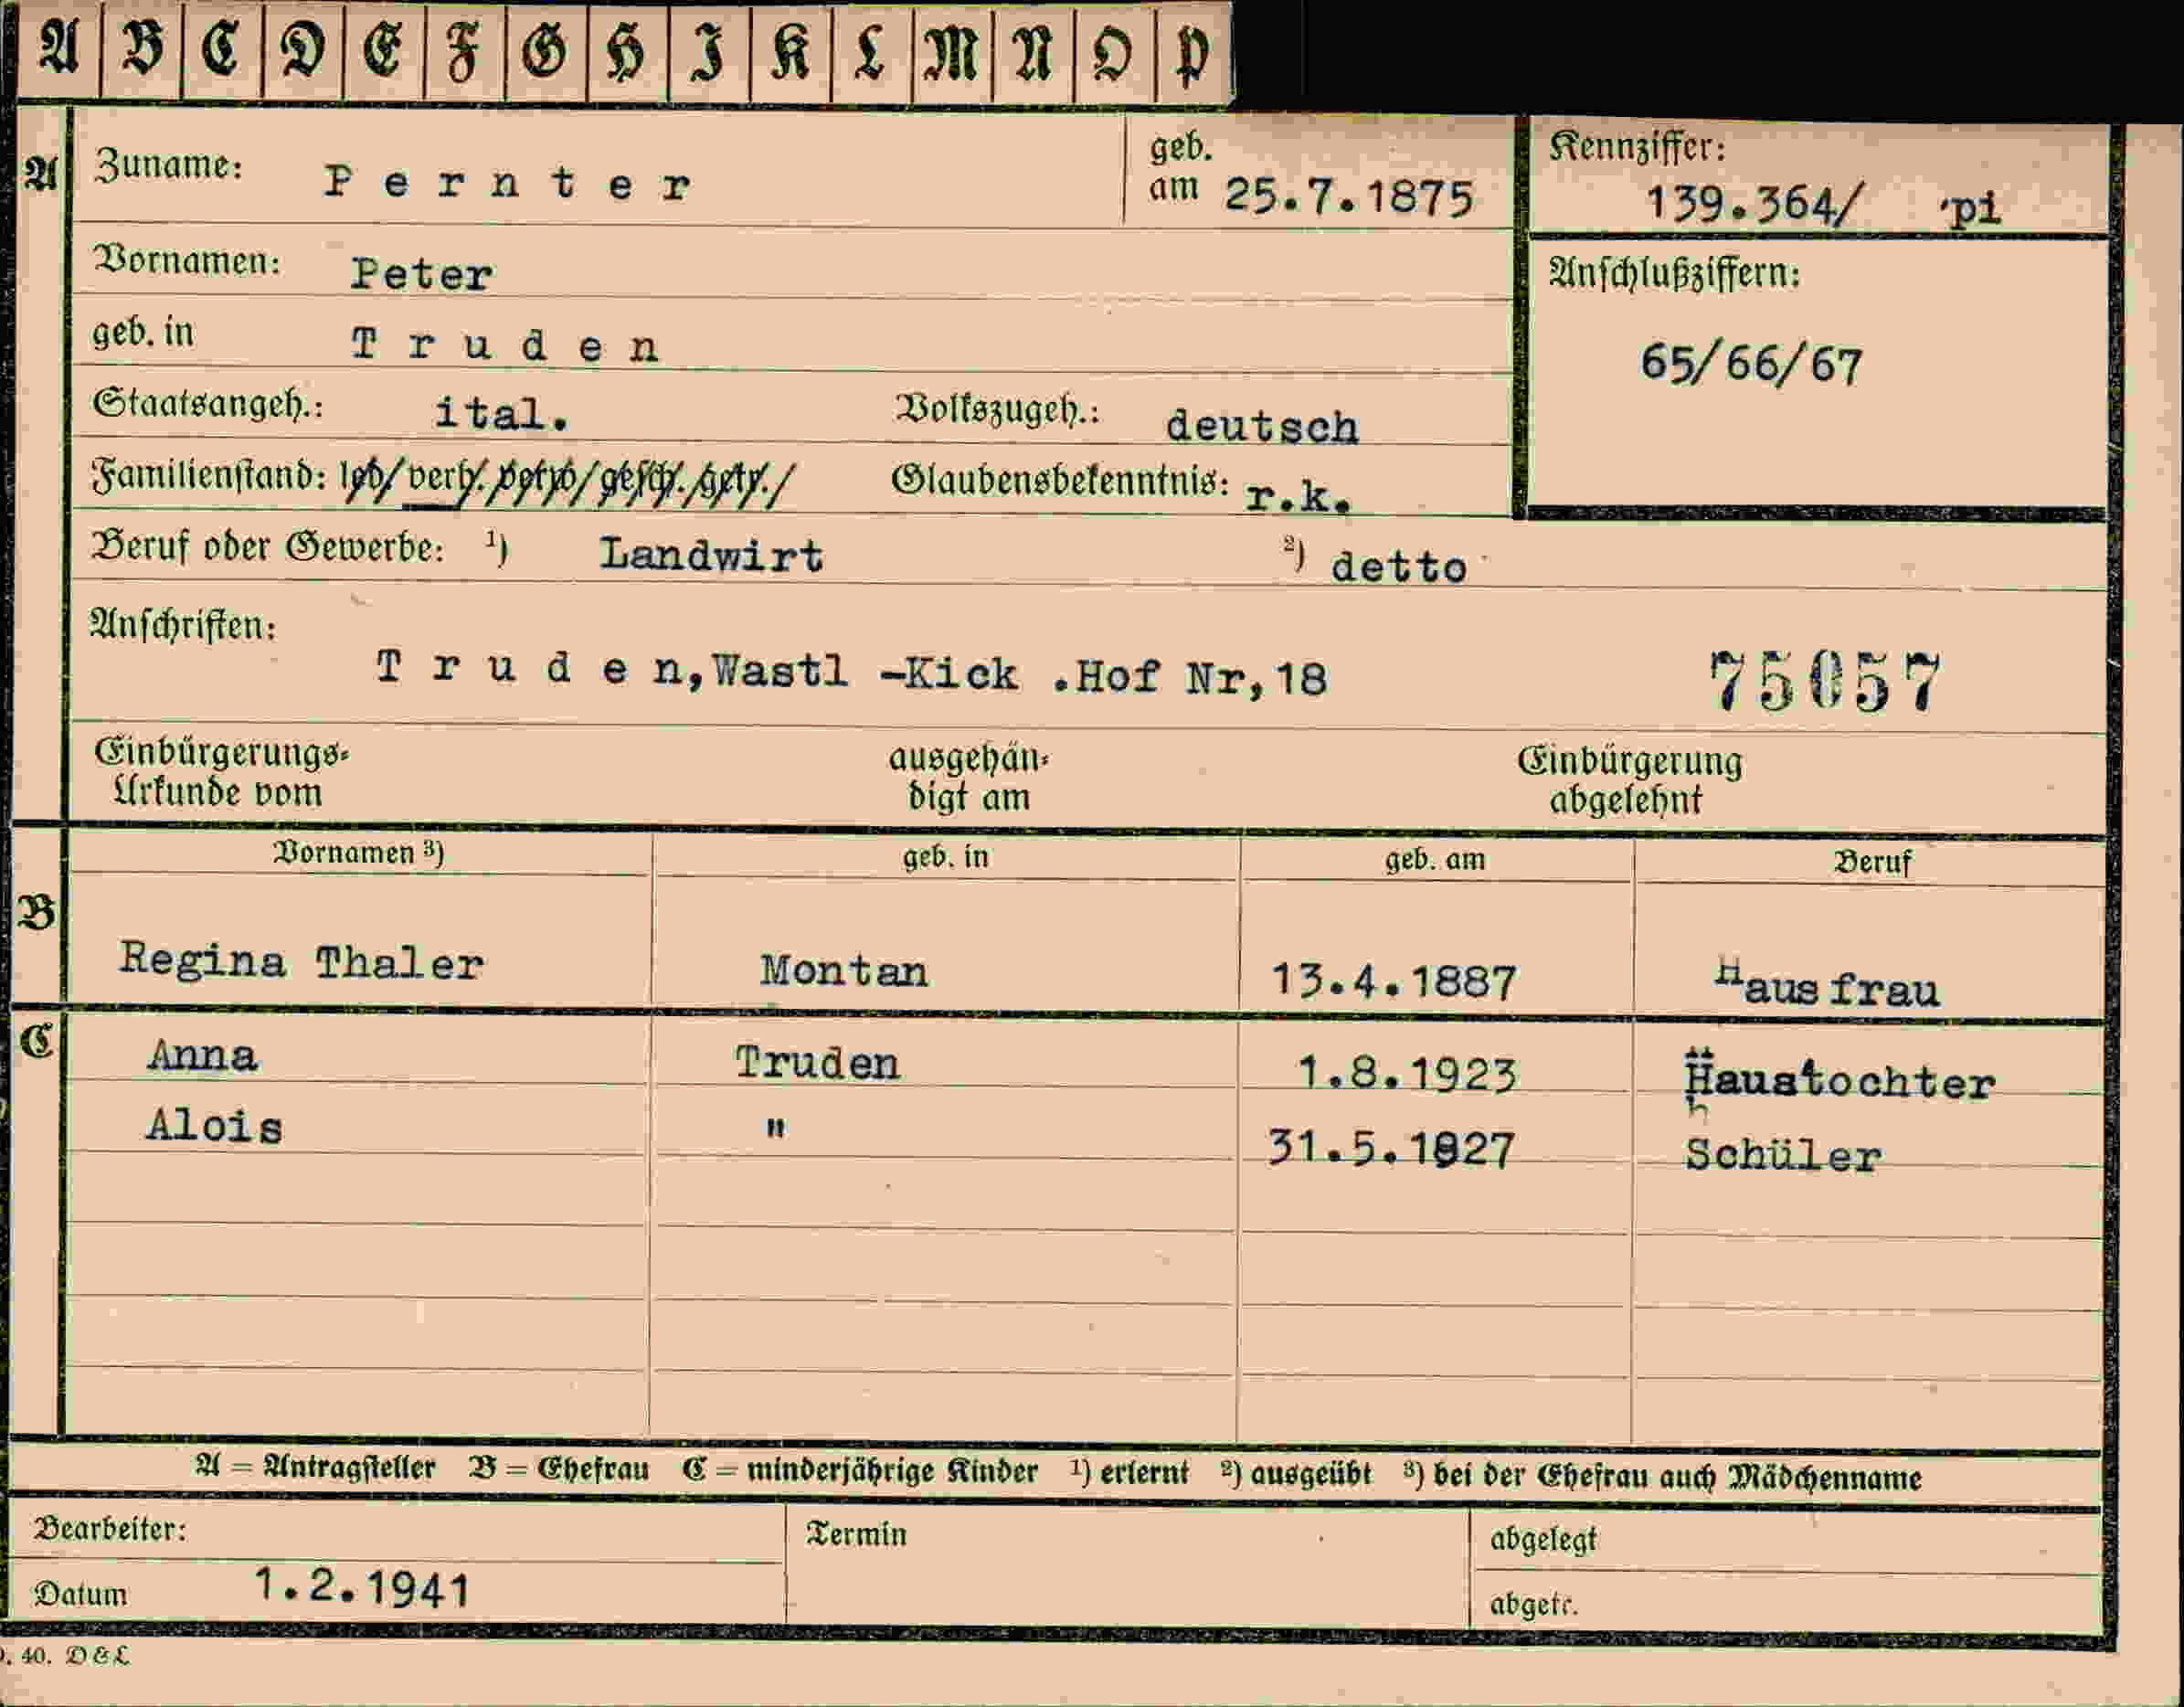 A B C D E F G H I K L M N O P
A Zuname: Pernter geb. am 25.7.1875 Kennziffer: 139.364/ pi
Vornamen: Peter Anschlußziffern:
geb. in Truden 65/66/67
Staatsangeh.: ital. Volkszugeh.: deutsch
Familienstand: led/verh./verw./gesch./getr./ Glaubensbekenntnis: r.k.
Beruf oder Gewerbe: ¹) Landwirt ²) detto
Anschriften:
Truden,Wastl -Kick .Hof Nr,18 75057
Einbürgerungs- ausgehän- Einbürgerung
Urkunde vom digt am abgelehnt
B Vornamen ³) geb. in geb. am Beruf
Regina Thaler Montan 13.4.1887 Hausfrau
C Anna Truden 1.8.1923 Haustochter
Alois " 31.5.1927 Schüler
A = Antragsteller B = Ehefrau C = minderjährige Kinder ¹) erlernt ²) ausgeübt ³) bei der Ehefrau auch Mädchenname
Bearbeiter: Termin abgelegt
Datum 1.2.1941 abgetr.
40. D&L